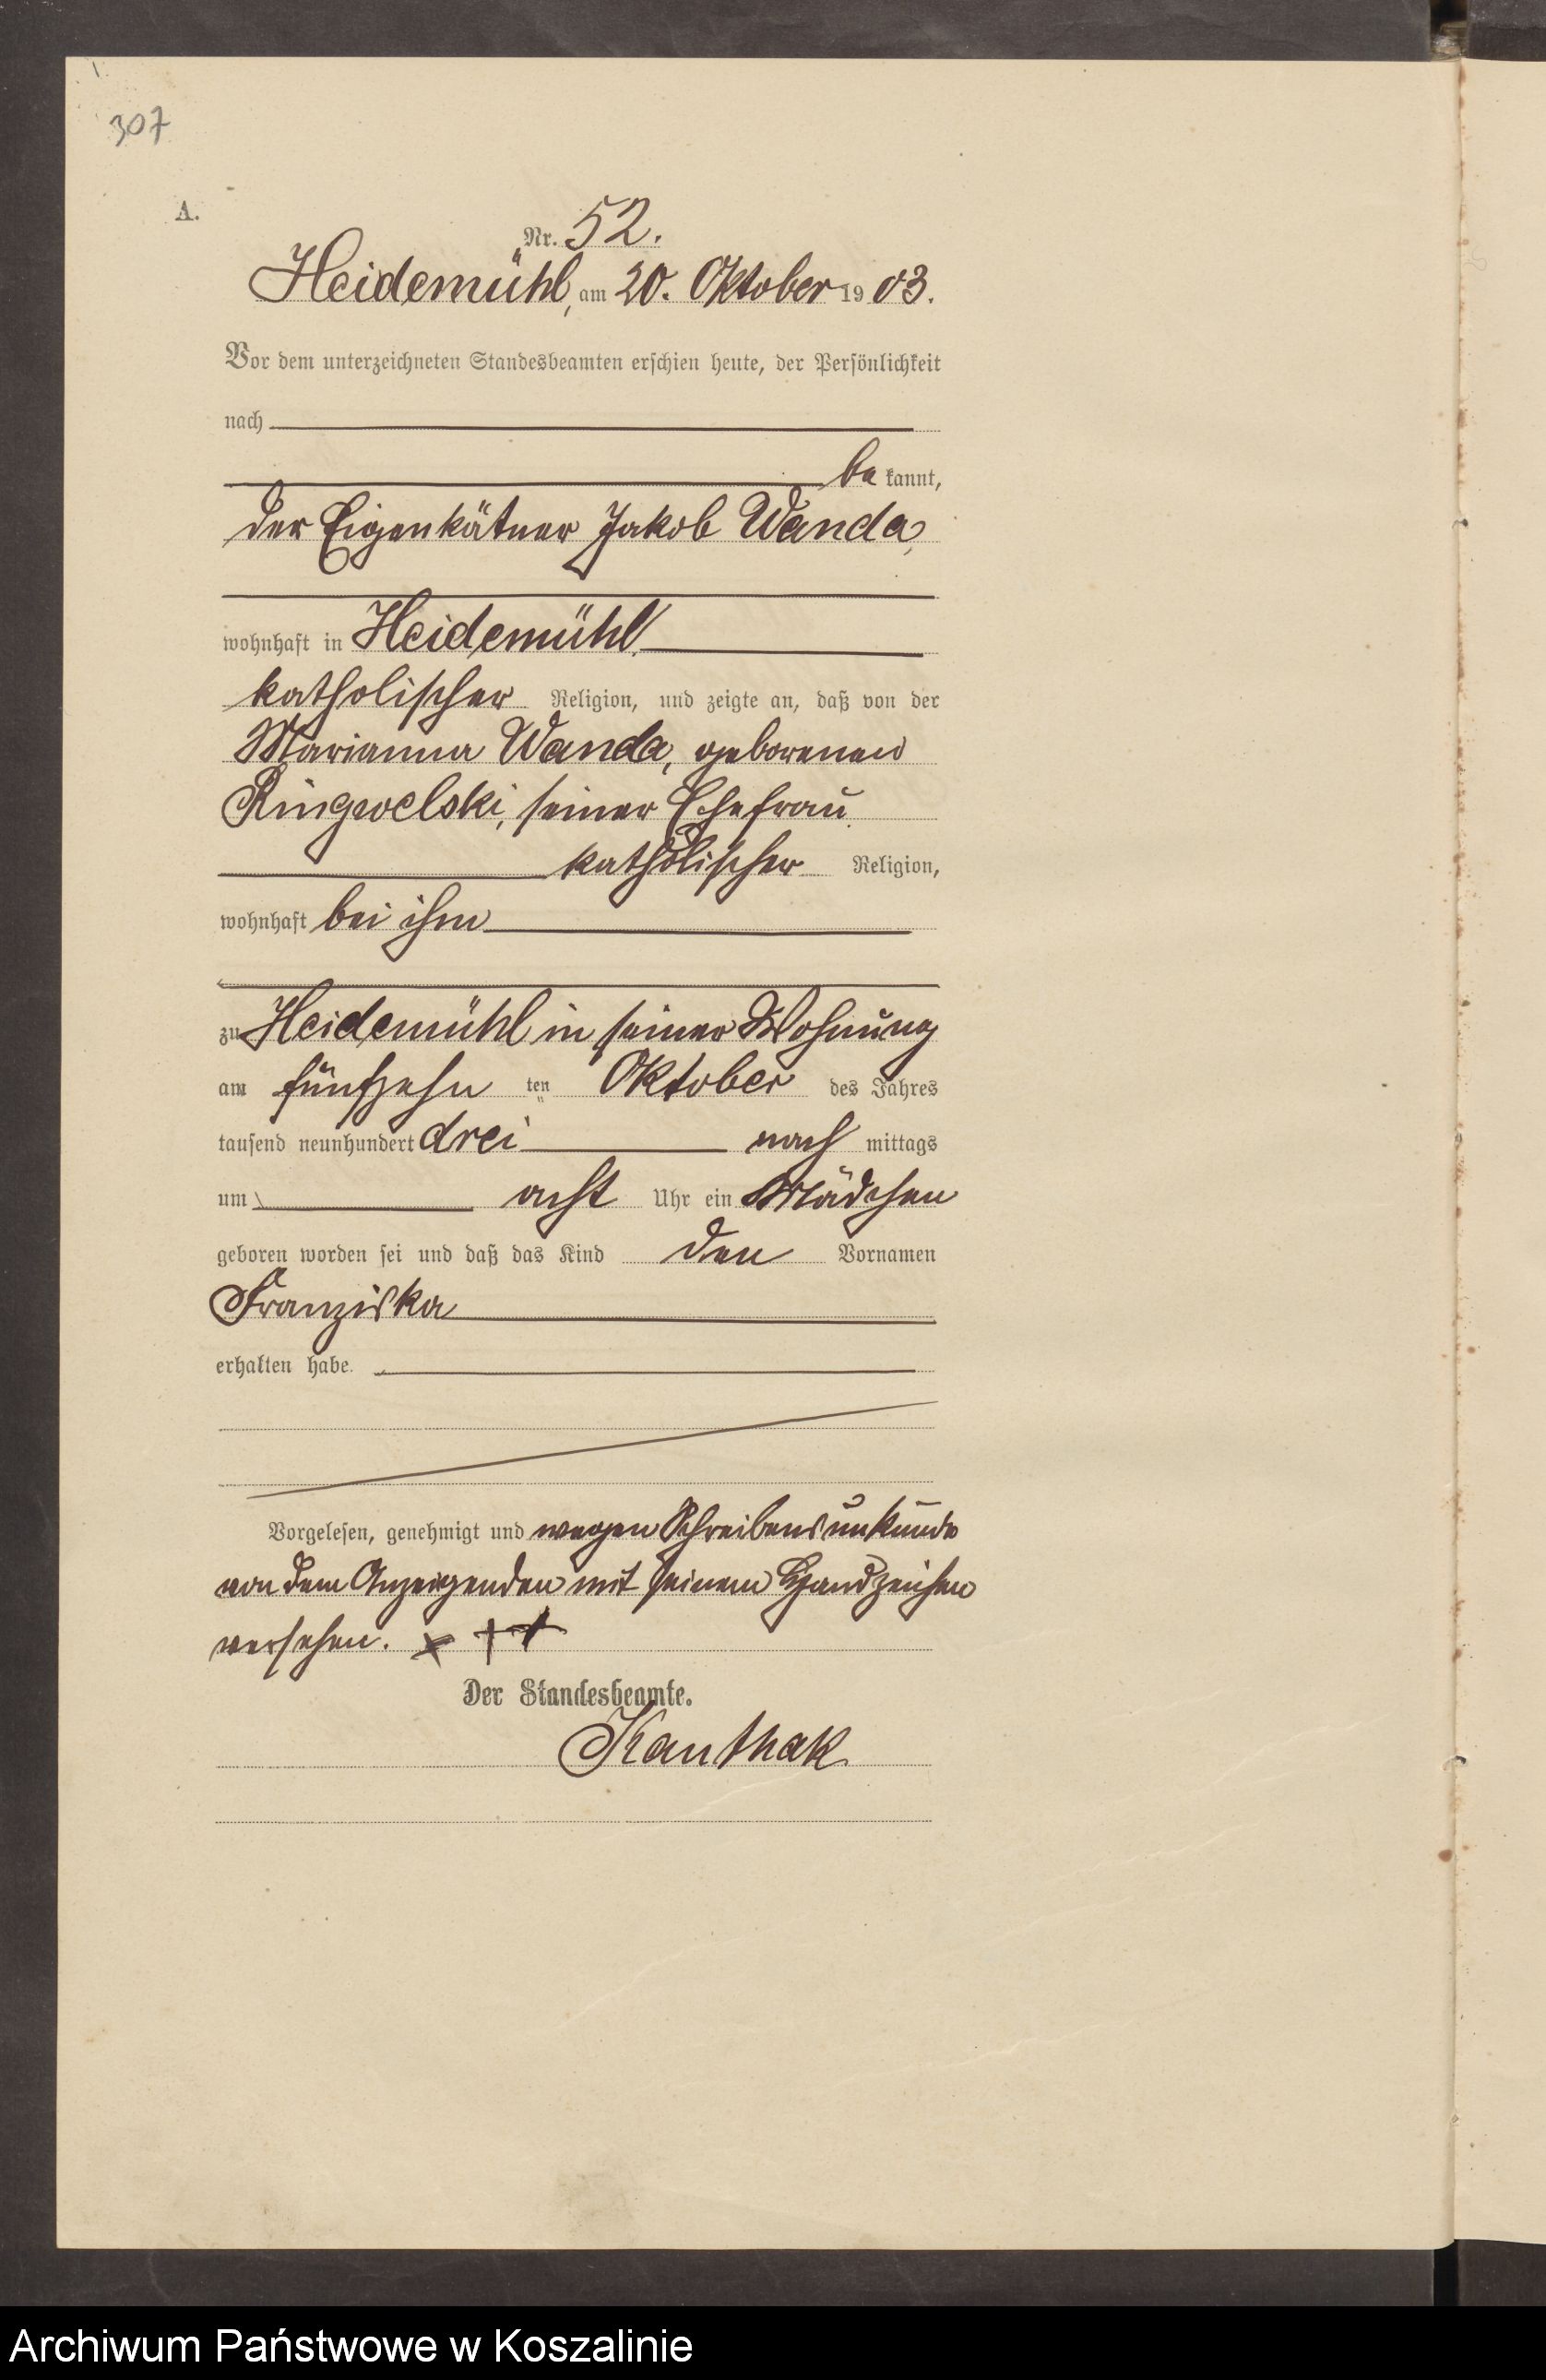 307
A.
Nr. 52.
Heidemühl, am 20. Oktober 1903.
Vor dem unterzeichneten Standesbeamten erschien heute, der Persönlichkeit
nach
be kannt,
der Eigenkätner Jakob Wanda,
wohnhaft in Heidemühl
katholischer Religion, und zeigte an, daß von der
Marianna Wanda, geborenen
Ringwelski, seiner Ehefrau
katholischer Religion,
wohnhaft bei ihm
zu Heidemühl in seiner Wohnung
am fünfzehn ten Oktober des Jahres
tausend neunhundert drei nach mittags
um acht Uhr ein Mädchen
geboren worden sei und daß das Kind den Vornamen
Franziska
erhalten habe.
Vorgelesen, genehmigt und wegen Schreibensunkunde
von dem Anzeigenden mit seinem Handzeichen
versehen. x + +
Der Standesbeamte.
Kanthak
Archiwum Państwowe w Koszalinie